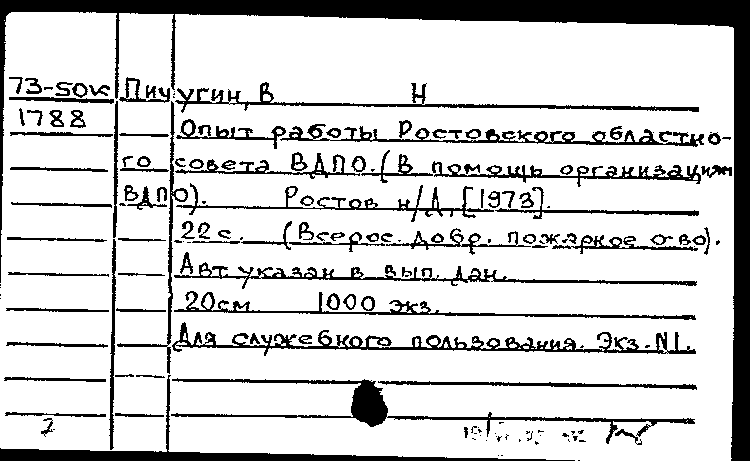 73-50к Пичугин, В Н
1788
Опыт работы Ростовского областно-
го совета ВДПО. (В помощь организациям
ВДПО). Ростов н/Д, [1973].
22 с. (Всерос. добр. пожарное о-во).
Авт. указан в вып. дан.
20см 1000 экз.
Для служебного пользования. Экз. N1.
2